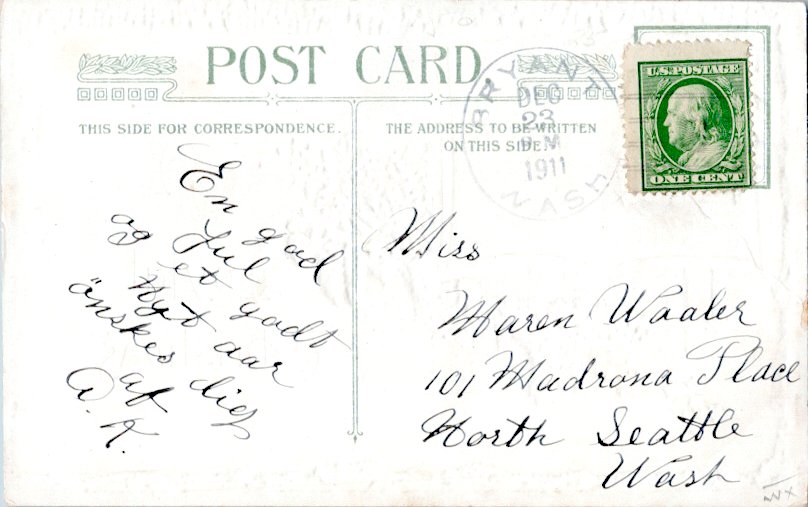 POST CARD
THIS SIDE FOR CORRESPONDENCE.
THE ADDRESS TO BE WRITTEN
ON THIS SIDE
BRYANT
DEC
23
P.M.
1911
WASH
U.S. POSTAGE
ONE CENT
En god
og Jul
et godt
Nyt aar
önskes dig
af
A. K.
Miss
Maren Waaler
101 Madrona Place
North Seattle
Wash